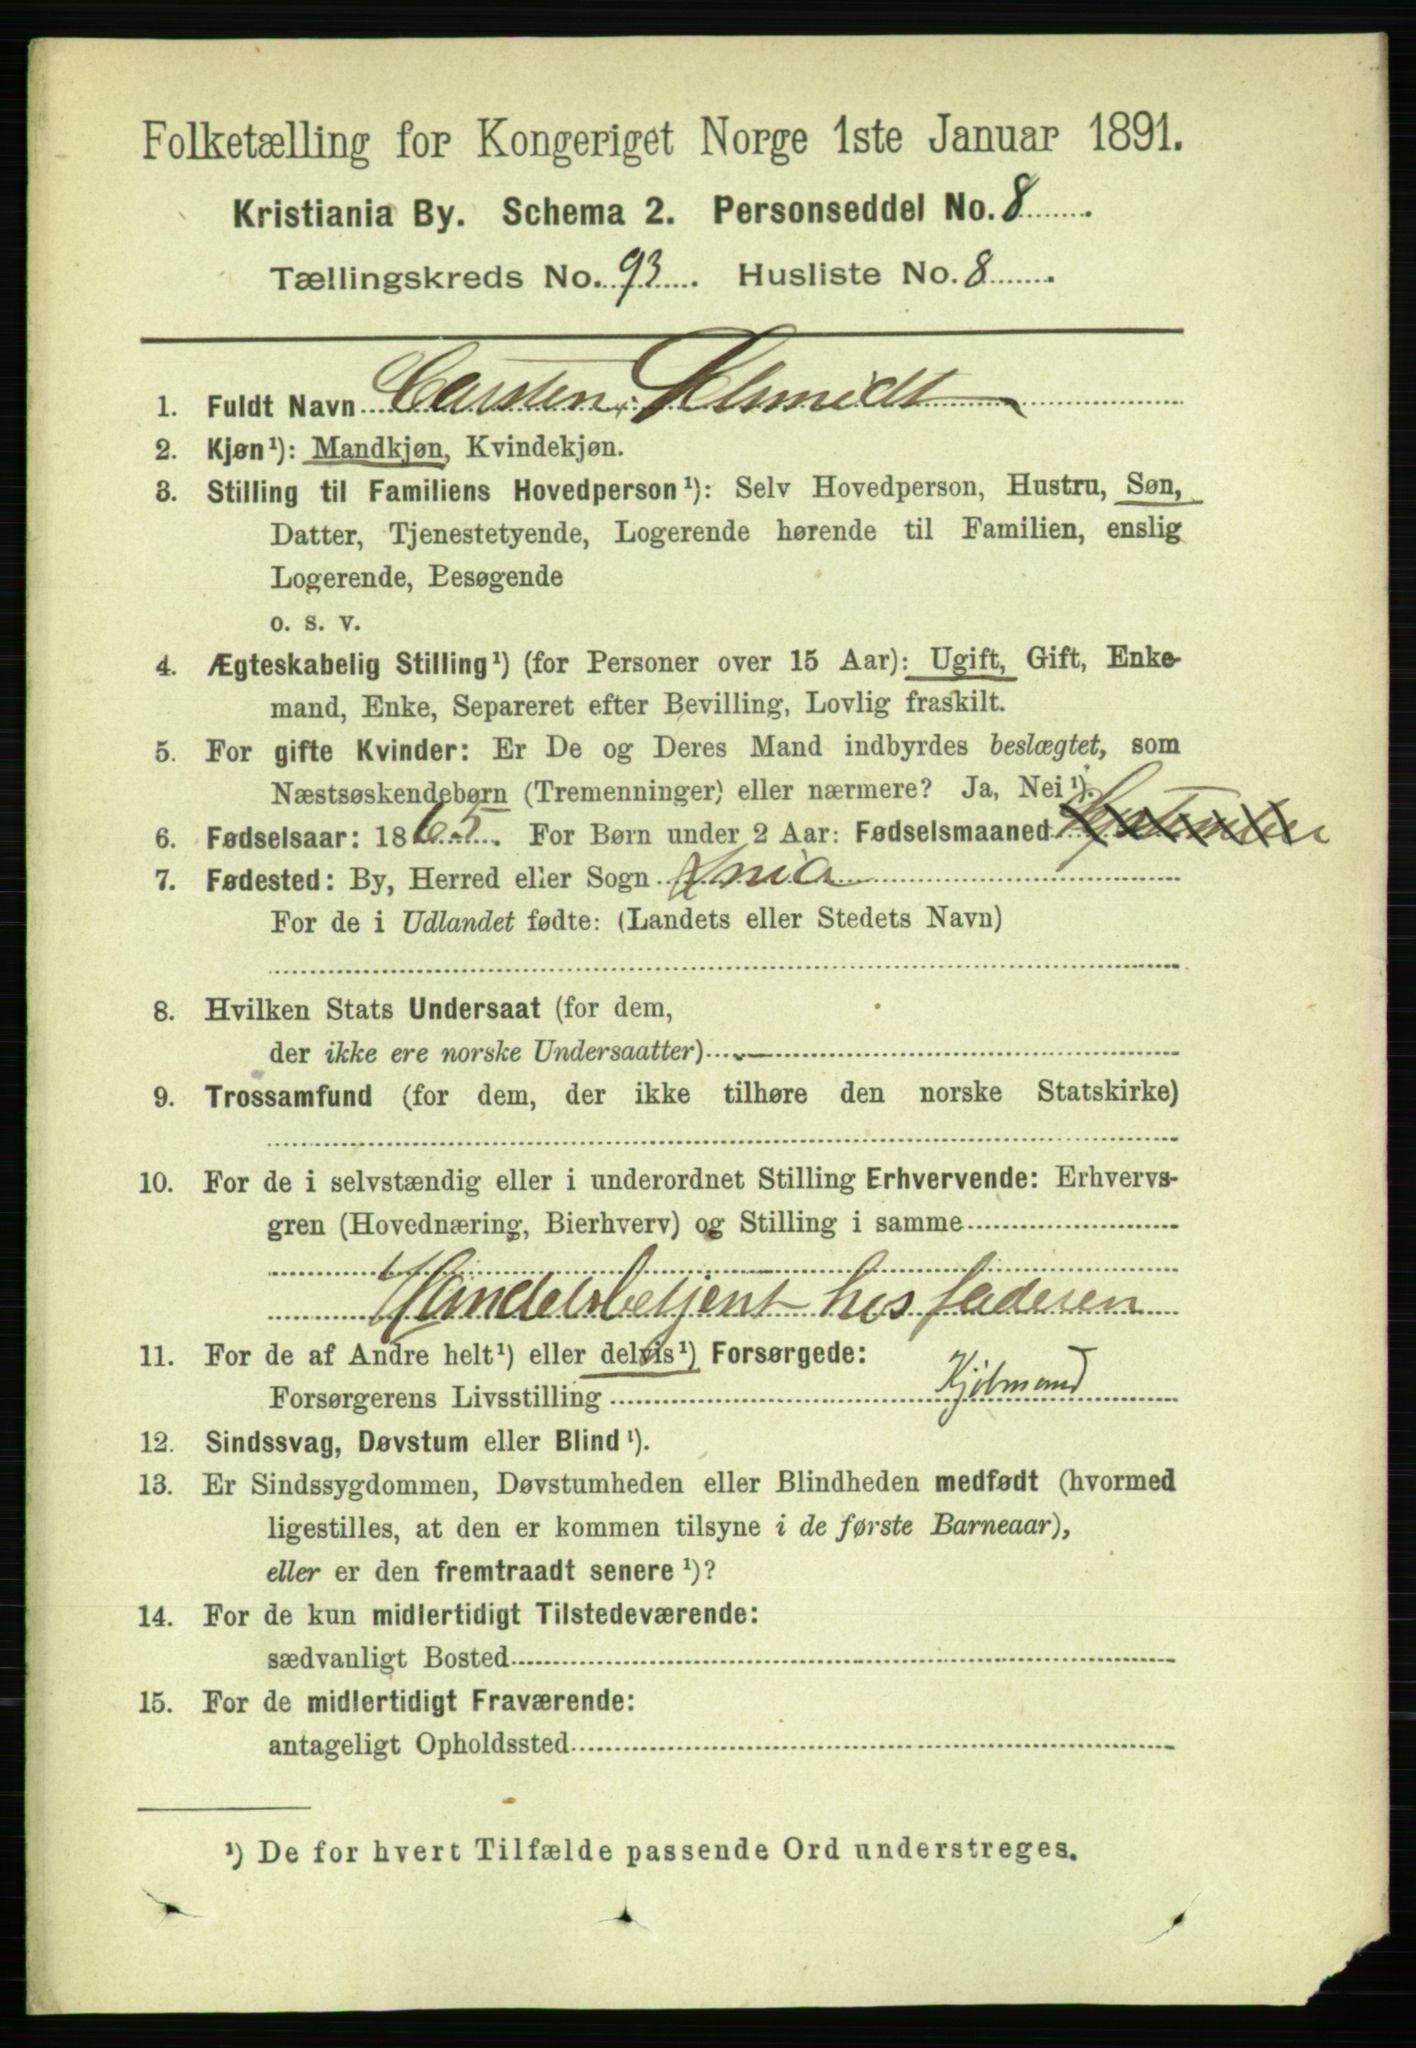 Folketælling for Kongeriget Norge 1ste Januar 1891.
Kristiania By. Schema 2. Personseddel No. 8.
Tællingskreds No. 93. Husliste No. 8.
1. Fuldt Navn Carsten Schmidt
2. Kjøn¹): Mandkjøn, Kvindekjøn.
3. Stilling til Familiens Hovedperson¹): Selv Hovedperson, Hustru, Søn,
Datter, Tjenestetyende, Logerende hørende til Familien, enslig
Logerende, Besøgende
o. s. v.
4. Ægteskabelig Stilling¹) (for Personer over 15 Aar): Ugift, Gift, Enke-
mand, Enke, Separeret efter Bevilling, Lovlig fraskilt.
5. For gifte Kvinder: Er De og Deres Mand indbyrdes beslægtet, som
Næstsøskendebørn (Tremenninger) eller nærmere? Ja, Nei¹).
6. Fødselsaar: 1865. For Børn under 2 Aar: Fødselsmaaned September
7. Fødested: By, Herred eller Sogn Xnia
For de i Udlandet fødte: (Landets eller Stedets Navn)
8. Hvilken Stats Undersaat (for dem,
der ikke ere norske Undersaatter)
9. Trossamfund (for dem, der ikke tilhøre den norske Statskirke)
10. For de i selvstændig eller i underordnet Stilling Erhvervende: Erhvervs-
gren (Hovednæring, Bierhverv) og Stilling i samme
Handelsbetjent hos faderen
11. For de af Andre helt¹) eller delvis¹) Forsørgede:
Forsørgerens Livsstilling Kjøbmand
12. Sindssvag, Døvstum eller Blind¹).
13. Er Sindssygdommen, Døvstumheden eller Blindheden medfødt (hvormed
ligestilles, at den er kommen tilsyne i de første Barneaar),
eller er den fremtraadt senere¹)?
14. For de kun midlertidigt Tilstedeværende:
sædvanligt Bosted
15. For de midlertidigt Fraværende:
antageligt Opholdssted
¹) De for hvert Tilfælde passende Ord understreges.